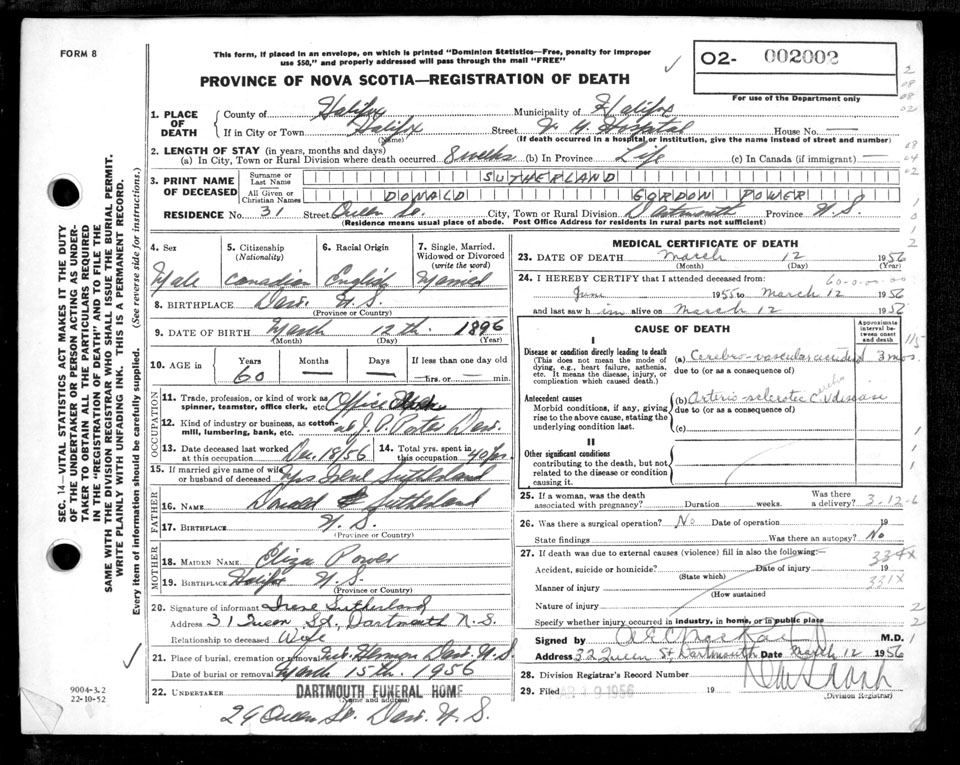 FORM 8
This form, if placed in an envelope, on which is printed "Dominion Statistics—Free, penalty for improper
use $50," and properly addressed will pass through the mail "FREE"
PROVINCE OF NOVA SCOTIA—REGISTRATION OF DEATH
O2- 002002
For use of the Department only
1. PLACE OF DEATH
County of Halifax Municipality of Halifax
If in City or Town Halifax Street V G Hospital House No. —
(Name) (If death occurred in a hospital or institution, give the name instead of street and number)
2. LENGTH OF STAY (in years, months and days)
(a) In City, Town or Rural Division where death occurred 8 weeks (b) In Province Life (c) In Canada (if immigrant) —
3. PRINT NAME OF DECEASED
Surname or Last Name SUTHERLAND
All Given or Christian Names DONALD GORDON POWER
RESIDENCE No. 31 Street Queen St. City, Town or Rural Division Dartmouth Province N.S.
(Residence means usual place of abode. Post Office Address for residents in rural parts not sufficient)
4. Sex Male
5. Citizenship (Nationality) Canadian
6. Racial Origin English
7. Single, Married, Widowed or Divorced (write the word) Married
8. BIRTHPLACE Dart. N.S.
(Province or Country)
9. DATE OF BIRTH March 12th 1896
(Month) (Day) (Year)
10. AGE in Years 60 Months — Days — If less than one day old
hrs. or min.
OCCUPATION
11. Trade, profession, or kind of work as
spinner, teamster, office clerk, etc. Office
12. Kind of industry or business, as cotton-
mill, lumbering, bank, etc. Dart.
13. Date deceased last worked at this occupation Dec. 18/56
14. Total yrs. spent in this occupation 40 yrs.
15. If married give name of wife
or husband of deceased Mrs Irene Sutherland
FATHER
16. NAME Donald Sutherland
17. BIRTHPLACE N.S.
(Province or Country)
MOTHER
18. MAIDEN NAME Eliza Power
19. BIRTHPLACE Halifax N.S.
(Province or Country)
20. Signature of informant Irene Sutherland
Address 31 Queen St., Dartmouth N.S.
Relationship to deceased Wife
21. Place of burial, cremation or removal Mt. Hermon Dart. N.S.
Date of burial or removal March 15th. 1956
22. UNDERTAKER DARTMOUTH FUNERAL HOME
(Name and address)
29 Queen St. Dart. N.S.
MEDICAL CERTIFICATE OF DEATH
23. DATE OF DEATH March 12 1956
(Month) (Day)
24. I HEREBY CERTIFY that I attended deceased from:
60-0-00-00
June 1955 to March 12 1956
and last saw him alive on March 12 1956
CAUSE OF DEATH
Approximate interval between onset and death
I
Disease or condition directly leading to death
(This does not mean the mode of
dying, e.g., heart failure, asthenia,
etc. It means the disease, injury, or
complication which caused death.)
(a) Cerebro-vascular accident 3 mos.
due to (or as a consequence of)
Antecedent causes
Morbid conditions, if any, giving
rise to the above cause, stating the
underlying condition last.
(b) Arterio-sclerotic disease
due to (or as a consequence of)
(c)
II
Other significant conditions
contributing to the death, but not
related to the disease or condition
causing it.
25. If a woman, was the death
associated with pregnancy? Duration weeks. Was there a delivery? 3-12-6
26. Was there a surgical operation? No Date of operation 19
State findings Was there an autopsy? No
27. If death was due to external causes (violence) fill in also the following:— 334X
Accident, suicide or homicide? Date of injury 19
(State which)
Manner of injury 331X
(How sustained
Nature of injury
Specify whether injury occurred in industry, in home, or in public place
Signed by M.D.
Address 32 Queen St, Dartmouth Date March 12 1956
28. Division Registrar's Record Number
29. Filed MAR 19 1956 19
(Division Registrar)
SEC. 14—VITAL STATISTICS ACT MAKES IT THE DUTY
OF THE UNDERTAKER OR PERSON ACTING AS UNDER-
TAKER TO OBTAIN ALL THE PARTICULARS REQUIRED
IN THE "REGISTRATION OF DEATH" AND TO FILE THE
SAME WITH THE DIVISION REGISTRAR WHO SHALL ISSUE THE BURIAL PERMIT.
WRITE PLAINLY WITH UNFADING INK. THIS IS A PERMANENT RECORD.
Every item of information should be carefully supplied. (See reverse side for instructions.)
9004-3.2
22-10-52